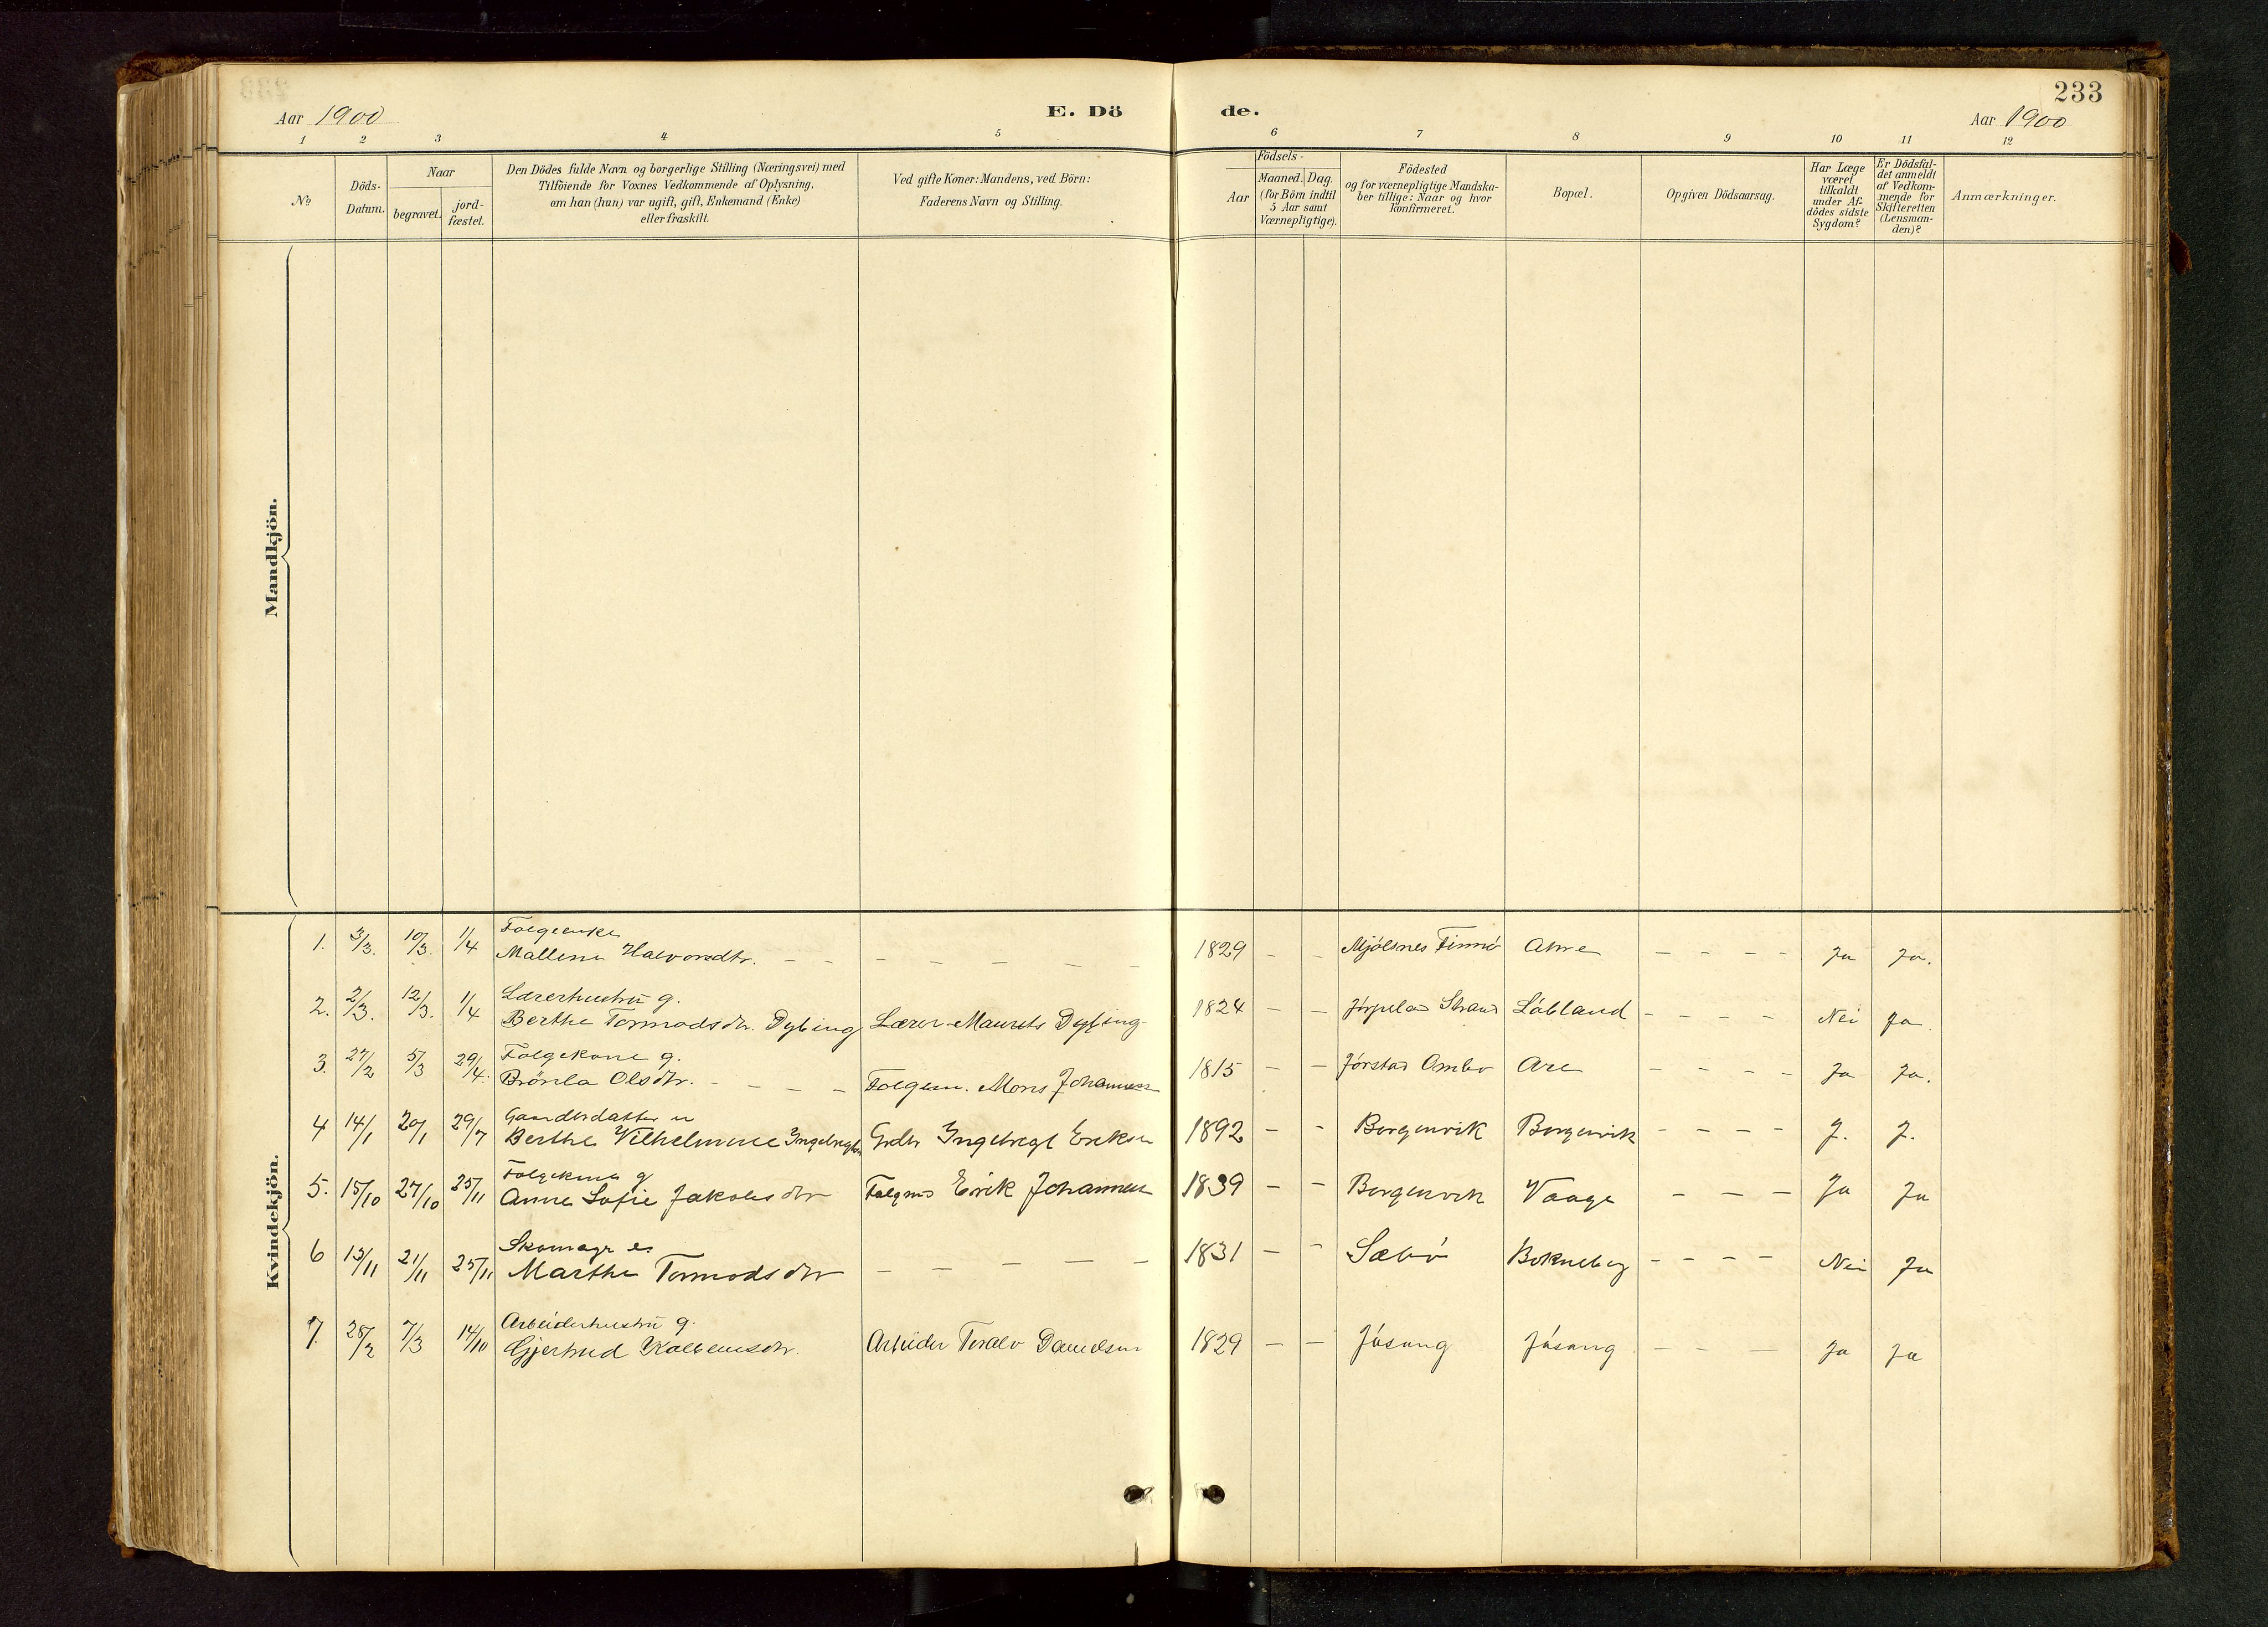 233
Aar 1900
E. Dö
de.
Aar 1900
1 2 3 4 5 6 7 8 9 10 11 12
No
Döds-
Datum.
Naar
begravet.
jord-
fæstet.
Den Dödes fulde Navn og borgerlige Stilling (Næringsvei) med
Tilföiende for Voxnes Vedkommende af Oplysning,
om han (hun) var ugift, gift, Enkemand (Enke)
eller fraskilt.
Ved gifte Koner: Mandens, ved Börn:
Faderens Navn og Stilling.
Födsels-
Aar
Maaned. Dag.
(for Börn indtil
5 Aar samt
Værnepligtige).
Födested
og for værnepligtige Mandska-
ber tillige: Naar og hvor
konfirmeret.
Bopæl.
Opgiven Dödsaarsag.
Har Læge
været
tilkaldt
under Af-
dödes sidste
Sygdom?
Er Dödsfal-
det anmeldt
af Vedkom-
mende for
Skifteretten
(Lensman-
den)?
Anmærkninger.
Mandkjön.
Kvindekjön.
Folgeenke
1. 3/3. 10/3. 1/4 Mallene Halvorsdtr. – – – – – – – – 1829 – – Mjölsnes Finnö Ahre – – – – Ja Ja.
Lærerhustru g.
2. 2/3. 12/3. 1/4 Berthe Tormodsdtr. Dybing Lærer Maurits Dybing 1824 – – Jörpeland Strand Löbland – – – – Nei Ja.
Folgekone g.
3. 27/2 5/3 29/4. Brönla Olsdtr. – – – – Folgem. Mons Johannesen 1815 – – Jörstad Ombo Are – – – – Ja Ja.
Gaardbrdatter u
4 14/1 20/1 29/7 Berthe Vilhelmine Ingebregtsdtr Grdbr Ingebregt Eriksen 1892 – – Borgenvik Borgenvik – – – – J. J.
Folgekone g
5. 15/10 27/10 25/11 Anne Sofie Jakobsdtr Folgmd Eirik Johannesen 1839 – – Borgenvik Vaage – – – Ja Ja
Skomagr e.
6 13/11 21/11 25/11 Marthe Tormodsdtr – – – – – 1831 – – Sæbö Bokneberg – – – – Nei Ja
Arbeiderhustru g.
7. 28/2 7/3 14/10 Gjertrud Kolbensdtr. Arbeider Toralv Danielsen 1829 – – Jösang Jösang – – – Ja Ja